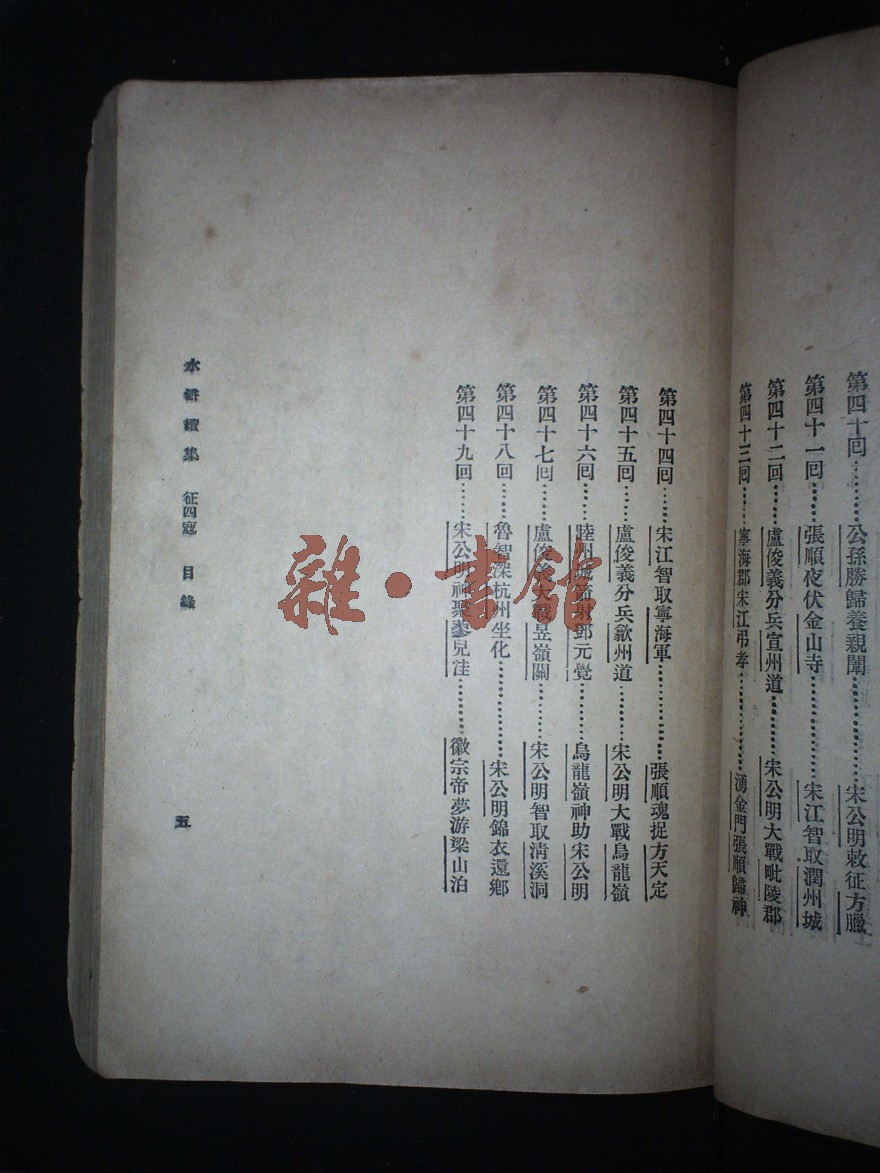 第四十回………公孫勝歸養親闈………宋公明敕征方臘
第四十一回……張順夜伏金山寺………宋江智取潤州城
第四十二回……盧俊義分兵宣州道………宋公明大戰毗陵郡
第四十三回……寧海郡宋江弔孝………湧金門張順歸神
第四十四回……宋江智取寧海軍………張順魂捉方天定
第四十五回……盧俊義分兵歙州道………宋公明大戰烏龍嶺
第四十六回……睦州城箭射鄧元覺………烏龍嶺神助宋公明
第四十七回……盧俊義大戰昱嶺關………宋公明智取清溪洞
第四十八回……魯智深杭州坐化………宋公明錦衣還鄉
第四十九回……宋公明神聚蓼兒洼………徽宗帝夢游梁山泊
水滸續集 征四寇 目錄
五
雜·書館